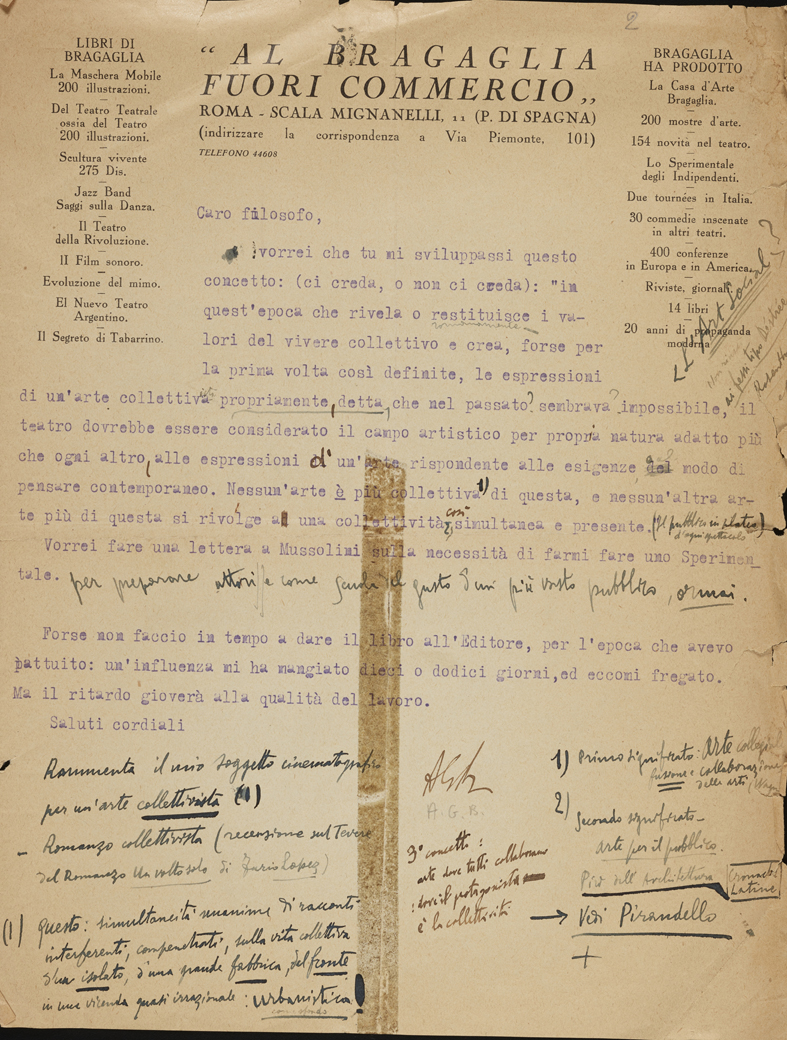 2
LIBRI DI
BRAGAGLIA
La Maschera Mobile
200 illustrazioni.
Del Teatro Teatrale
ossia del Teatro
200 illustrazioni.
Scultura vivente
275 Dis.
Jazz Band
Saggi sulla Danza.
Il Teatro
della Rivoluzione.
Il Film sonoro.
Evoluzione del mimo.
El Nuevo Teatro
Argentino.
Il Segreto di Tabarrino.
“AL BRAGAGLIA
FUORI COMMERCIO„
ROMA - SCALA MIGNANELLI, 11 (P. DI SPAGNA)
(indirizzare la corrispondenza a Via Piemonte, 101)
TELEFONO 44608
BRAGAGLIA
HA PRODOTTO
La Casa d'Arte
Bragaglia.
200 mostre d'arte.
154 novità nel teatro.
Lo Sperimentale
degli Indipendenti.
Due tournées in Italia.
30 commedie inscenate
in altri teatri.
400 conferenze
in Europa e in America.
Riviste, giornali
14 libri
20 anni di propaganda
moderna
L'Art Social?
Caro filosofo,
vorrei che tu mi sviluppassi questo
concetto: (ci creda, o non ci creda): "in
quest'epoca che rivela o restituisce i va-
lori del vivere collettivo e crea, forse per
la prima volta così definite, le espressioni
di un'arte collettiva propriamente, detta, che nel passato? sembrava? impossibile, il
teatro dovrebbe essere considerato il campo artistico per propria natura adatto più
che ogni altro, alle espressioni d'un'arte rispondente alle esigenze del modo di
pensare contemporaneo. Nessun'arte è più collettiva 1) di questa, e nessun'altra ar-
te più di questa si rivolge a una collettività così 2) simultanea e presente. (Il pubblico in platea
d'ogni spettacolo)
Vorrei fare una lettera a Mussolini sulla necessità di farmi fare uno Sperimen
tale. per preparare attori e come scuola del gusto d'un più vasto pubblico, ormai.
Forse non faccio in tempo a dare il libro all'Editore, per l'epoca che avevo
pattuito: un'influenza mi ha mangiato dieci o dodici giorni, ed eccomi fregato.
Ma il ritardo gioverà alla qualità del lavoro.
Saluti cordiali
AGB
A.G.B.
Rammenta il mio soggetto cinematografico
per un'arte collettivista (1)
- Romanzo collettivista (recensione sul Tevere
del Romanzo Un volto solo di Furio Lopez)
(1) Questo: simultaneità unanime di racconti
interferenti, compenetrati, sulla vita collettiva
d'un isolato, d'una grande fabbrica, del fronte
in una vicenda quasi irrazionale: Urbanistica!
3° concetto:
arte dove tutti collaborano
: dove il protagonista
è la collettività
1) Primo significato: Arte
fusione e collaborazione
delle arti
2) Secondo significato -
arte per il pubblico.
Più dell'Architettura
Cronache
Latine
→ Vedi Pirandello
+